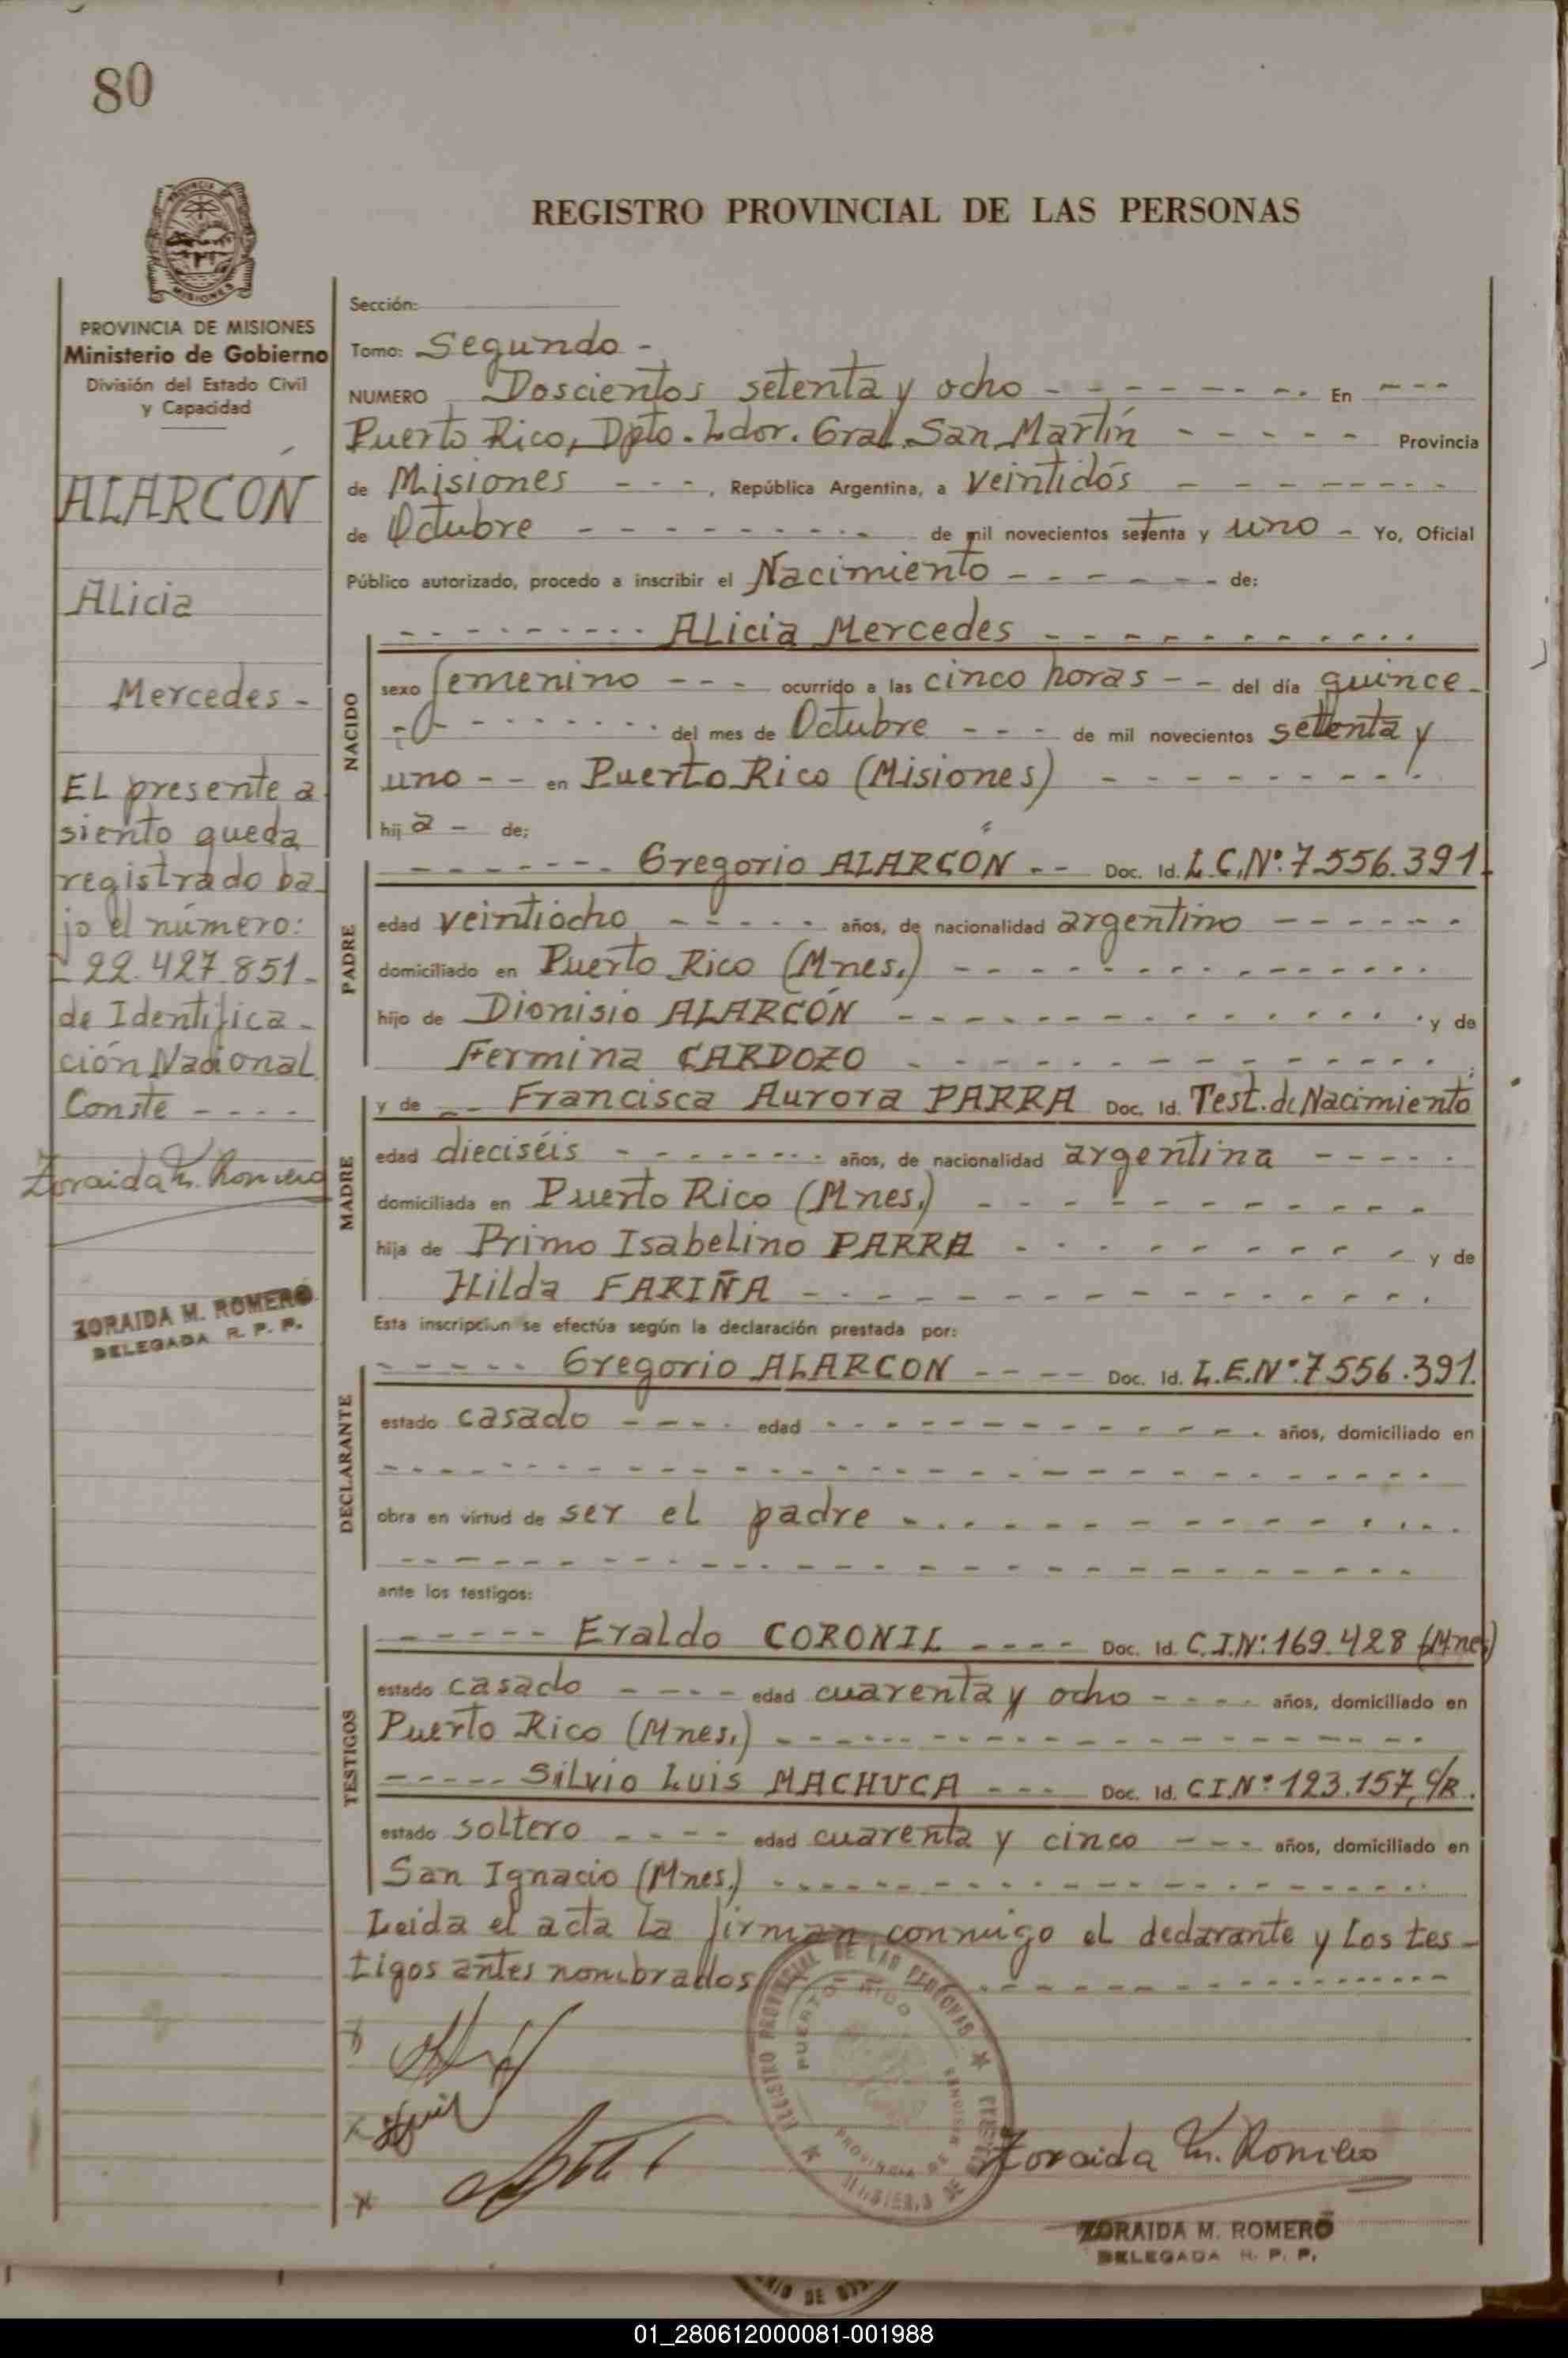 80
REGISTRO PROVINCIAL DE LAS PERSONAS
PROVINCIA DE
MISIONES
PROVINCIA DE MISIONES
Ministerio de Gobierno
División del Estado Civil
y Capacidad
ALARCÓN
Alicia
Mercedes -
EL presente a
siento queda
registrado ba
jo el número:
- 22.427.851-
de Identifica-
ción Nacional.
Conste - - - -
Zoraida M. Romero
ZORAIDA M. ROMERO
DELEGADA R. P. P.
Sección:
Tomo: Segundo -
NUMERO Doscientos setenta y ocho - - - - - - - - En - - -
Puerto Rico, Dpto. Ldor. Gral. San Martín - - - - - Provincia
de Misiones - - -, República Argentina, a veintidós - - - - - - - -
de Octubre - - - - - - - - - de mil novecientos setenta y uno - Yo, Oficial
Público autorizado, procedo a inscribir el Nacimiento - - - - - - - de:
- - - - - - - - - Alicia Mercedes - - - - - - - - - - -
NACIDO
sexo femenino - - - ocurrido a las cinco horas - - del día quince -
- - - - - - - - del mes de Octubre - - - de mil novecientos setenta y
uno - - en Puerto Rico (Misiones) - - - - - - - - -
hij a - de;
PADRE
- - - - - - - Gregorio ALARCÓN - - Doc. Id. L.C.Nº:7.556.391-
edad veintiocho - - - - - años, de nacionalidad argentino - - - - - -
domiciliado en Puerto Rico (Mnes.) - - - - - - - - - - - - -
hijo de Dionisio ALARCÓN - - - - - - - - - - - - - y de
Fermina CARDOZO - - - - - - - - - - - - :
MADRE
y de - - Francisca Aurora PARRA Doc. Id. Test. de Nacimiento
edad dieciséis - - - - - - - - años, de nacionalidad argentina - - - - -
domiciliada en Puerto Rico (Mnes.) - - - - - - - - - - -
hija de Primo Isabelino PARRA - - - - - - - - - y de
Hilda FARIÑA - - - - - - - - - - - - - - -
Esta inscripción se efectúa según la declaración prestada por:
DECLARANTE
- - - - - Gregorio ALARCON - - - - Doc. Id. L.E.Nº:7.556.391.
estado casado - - - - edad - - - - - - - - - - - - - años, domiciliado en
- - - - - - - - - - - - - - - - - - - - - - - - - -
obra en virtud de ser el padre - - - - - - - - - - - - - -
- - - - - - - - - - - - - - - - - - - - - - - - - -
ante los testigos:
TESTIGOS
- - - - - Eraldo CORONIL - - - - Doc. Id. C.I.Nº:169.428 (Mnes)
estado casado - - - - edad cuarenta y ocho - - - - años, domiciliado en
Puerto Rico (Mnes.) - - - - - - - - - - - - - - - - - -
- - - - - Silvio Luis MACHUCA - - - Doc. Id. C I.Nº:123.157, C/R.
estado soltero - - - - edad cuarenta y cinco - - - años, domiciliado en
San Ignacio (Mnes.) - - - - - - - - - - - - - - - - - -
Leida el acta la firman conmigo el declarante y los tes-
tigos antes nombrados - - - - - - - - - - - - - -
REGISTRO PROVINCIAL DE LAS PERSONAS
PUERTO RICO
PROVINCIA DE MISIONES
Zoraida M. Romero
ZORAIDA M. ROMERO
DELEGADA R. P. P.
01_280612000081-001988